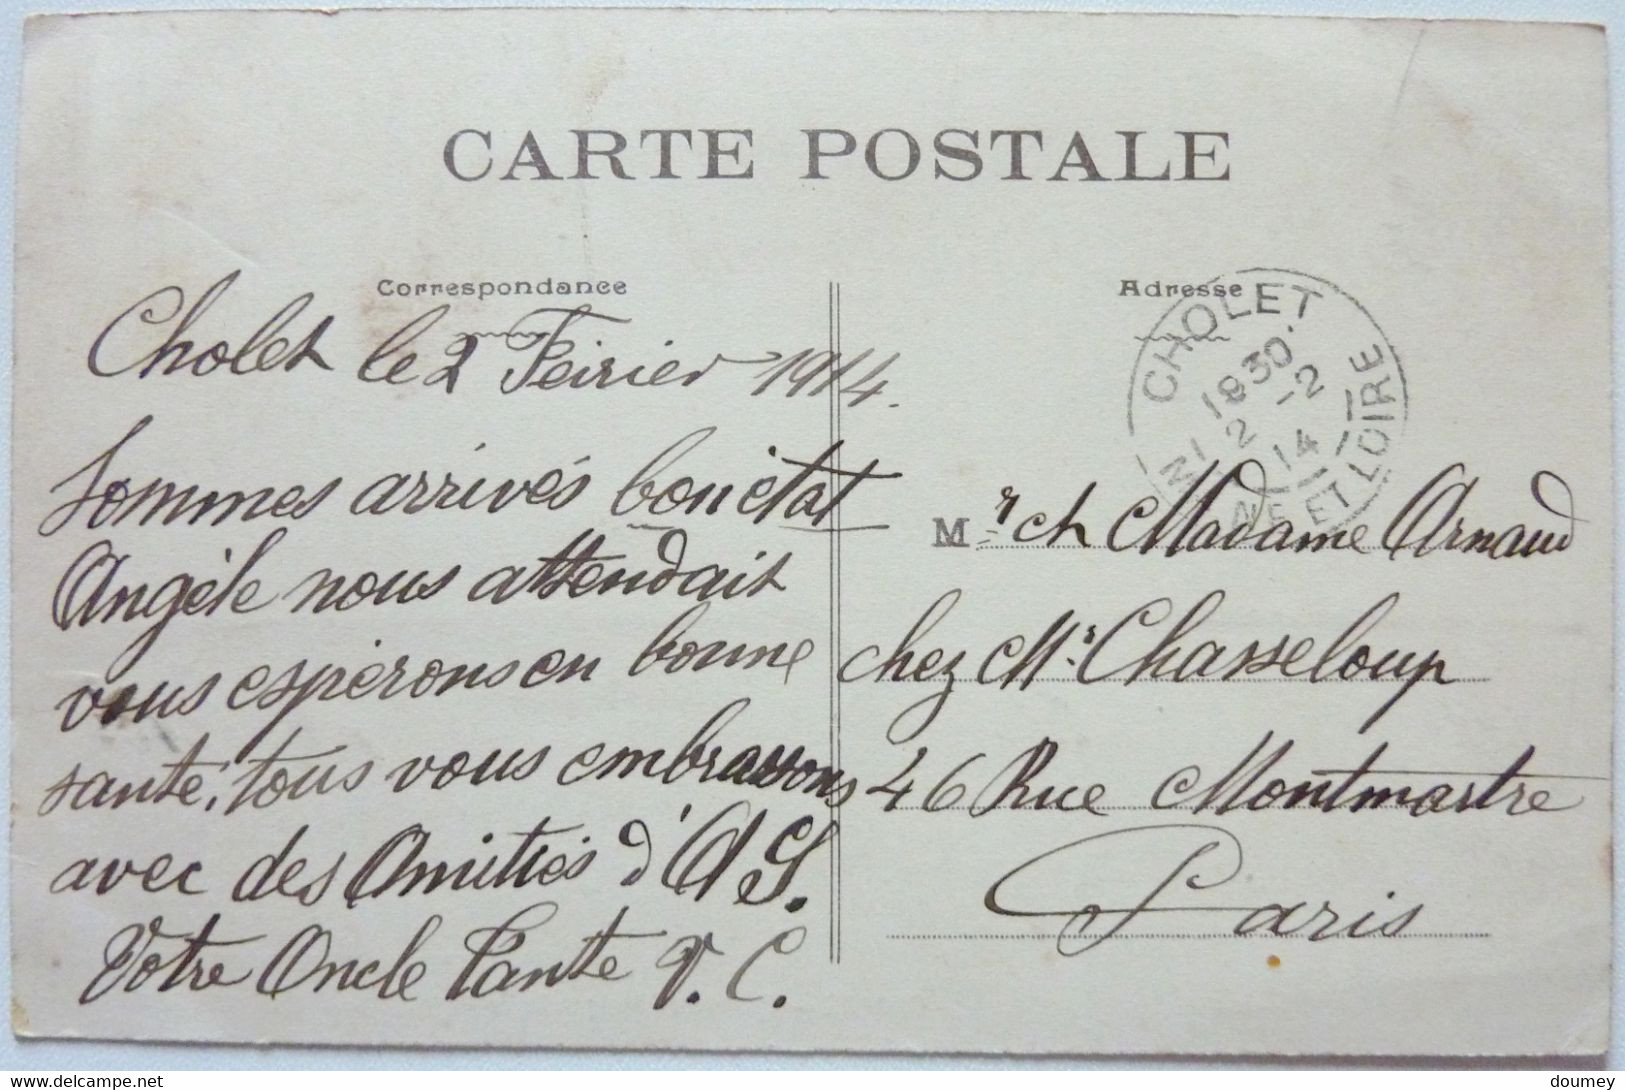 CARTE POSTALE
Correspondance
Cholet le 2 Feirier 1914.
Sommes arrivés bon état
Angèle nous attendait
vous espérons en bonne
santé, tous vous embrassons
avec des Amitiés d'A S.
Votre Oncle Tante V. C.
Adresse
CHOLET
1830.
2 -2
14
MAINE ET LOIRE
Mr et Madame Arnaud
chez Mr Chasseloup
46 Rue Montmartre
Paris
www.delcampe.net
doumey